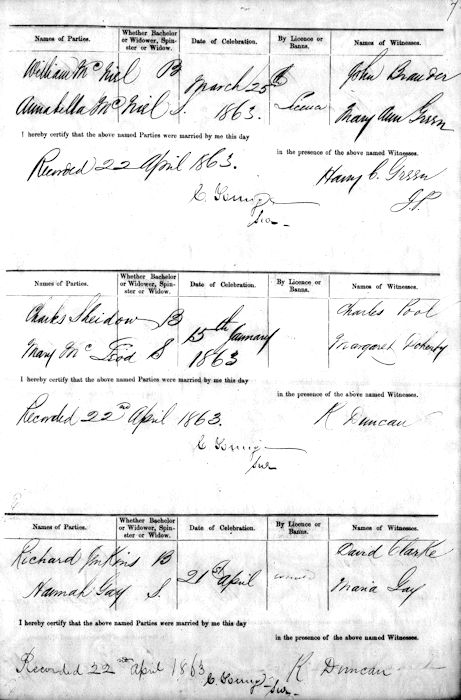 7
Names of Parties. Whether Bachelor or Widower, Spinster or Widow. Date of Celebration. By Licence or Banns. Names of Witnesses.
William McNiel B March 25th John Brander
Annabella McNiel S. 1863. Mary Ann Green
I hereby certify that the above named Parties were married by me this day
in the presence of the above named Witnesses.
Recorded 22 April 1863. Harry C. Green
J.P.
Names of Parties. Whether Bachelor or Widower, Spinster or Widow. Date of Celebration. By Licence or Banns. Names of Witnesses.
Charles Sheidow B 15th January Charles Pool
Mary Mc S 1863 Margaret Doherty
I hereby certify that the above named Parties were married by me this day
in the presence of the above named Witnesses.
Recorded 22nd April 1863. K Duncan
Names of Parties. Whether Bachelor or Widower, Spinster or Widow. Date of Celebration. By Licence or Banns. Names of Witnesses.
Richard Jenkins B 21st April David Clarke
Hannah Gay S. Maria Gay
I hereby certify that the above named Parties were married by me this day
in the presence of the above named Witnesses.
Recorded 22nd April 1863 K Duncan